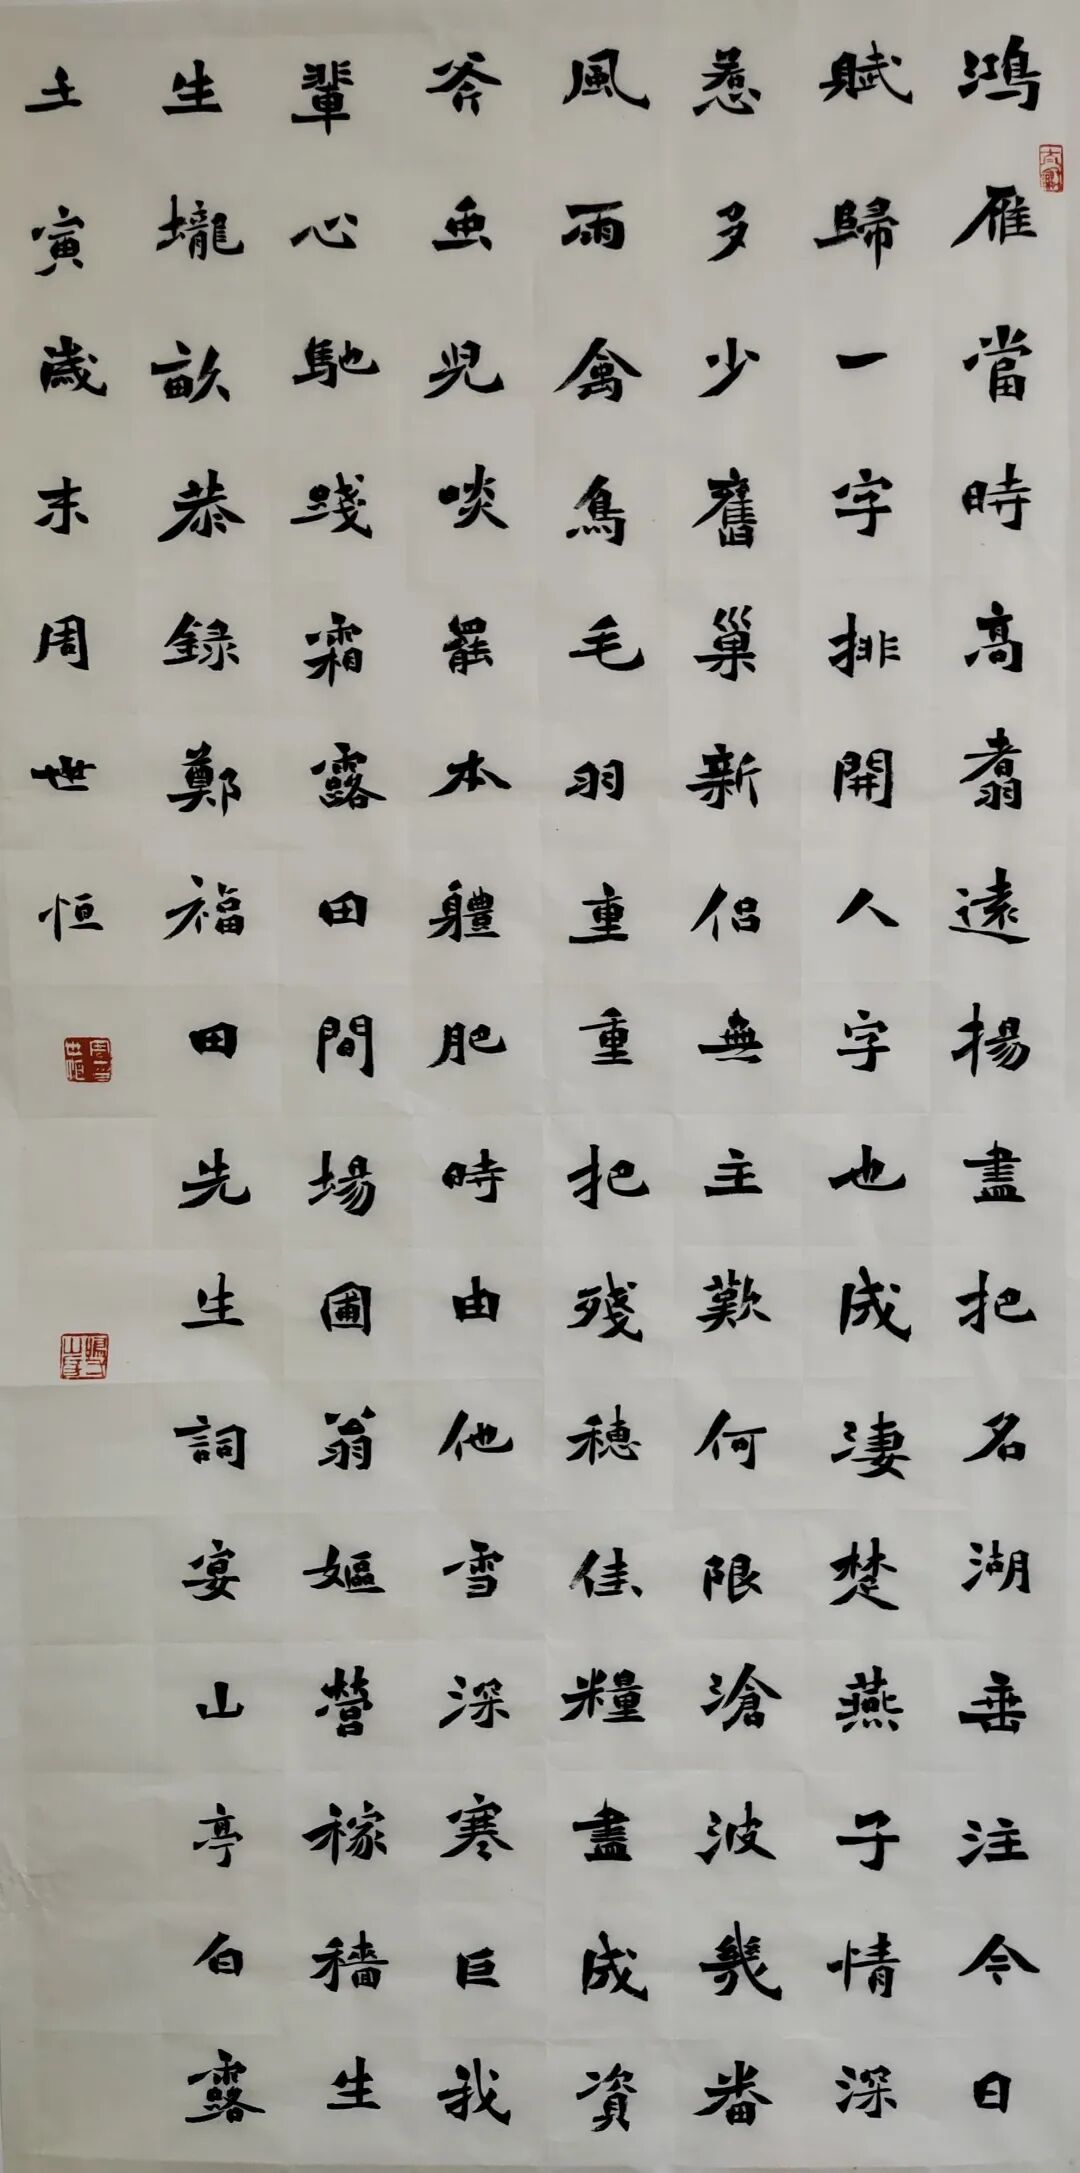 鴻雁當時高翥遠揚盡把名湖垂注今日
賦歸一字排開人字也成淒楚燕子情深
惹多少舊巢新侶無主歎何限滄波幾番
風雨禽鳥毛羽重重把殘穗佳糧盡成資
斧虫兒啖罷本體肥時由他雪深寒巨我
輩心馳踐霜露田間場圃翁嫗營稼穡生
生壠畝恭録鄭福田先生詞宴山亭白露
壬寅歲末周世恒